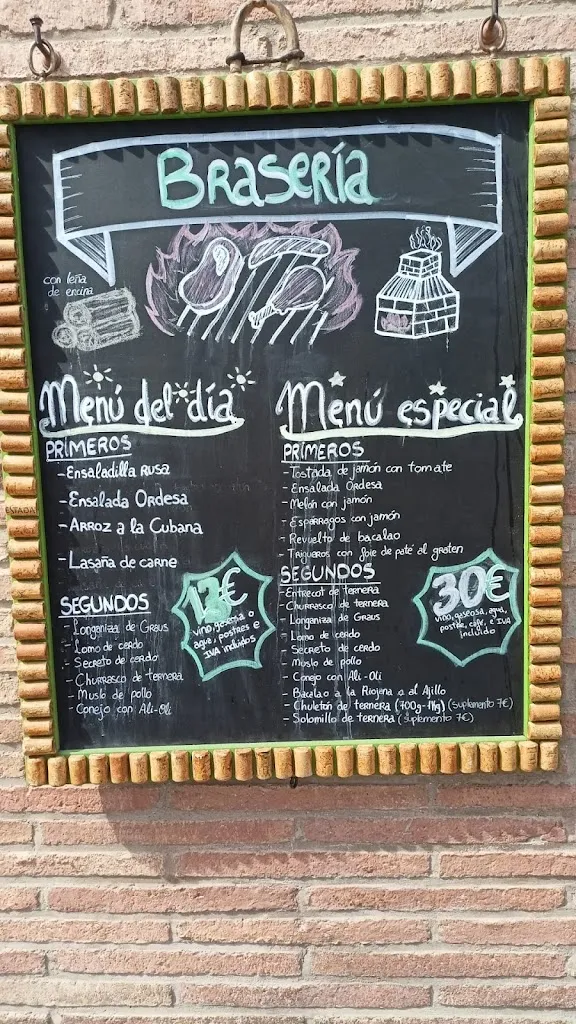 Brasería
con leña
de encina
Menú del día
PRIMEROS
- Ensaladilla Rusa
- Ensalada Ordesa
- Arroz a la Cubana
- Lasaña de carne
SEGUNDOS
- Longaniza de Graus
- Lomo de cerdo
- Secreto de cerdo
- Churrasco de ternera
- Muslo de pollo
- Conejo con Ali-Oli
13€
vino, gaseosa o
agua, postres e
IVA incluidos
Menú especial
PRIMEROS
- Tostada de jamón con tomate
- Ensalada Ordesa
- Melón con jamón
- Espárragos con jamón
- Revuelto de bacalao
- Trigueros con foie de paté al graten
SEGUNDOS
- Entrecot de ternera
- Churrasco de ternera
- Longaniza de Graus
- Lomo de cerdo
- Secreto de cerdo
- Muslo de pollo
- Conejo con Ali-Oli
- Bacalao a la Riojana o al Ajillo
- Chuletón de ternera (700g-1Kg) (suplemento 7€)
- Solomillo de ternera (suplemento 7€)
30€
vino, gaseosa, agua,
postre, café, e IVA
incluido